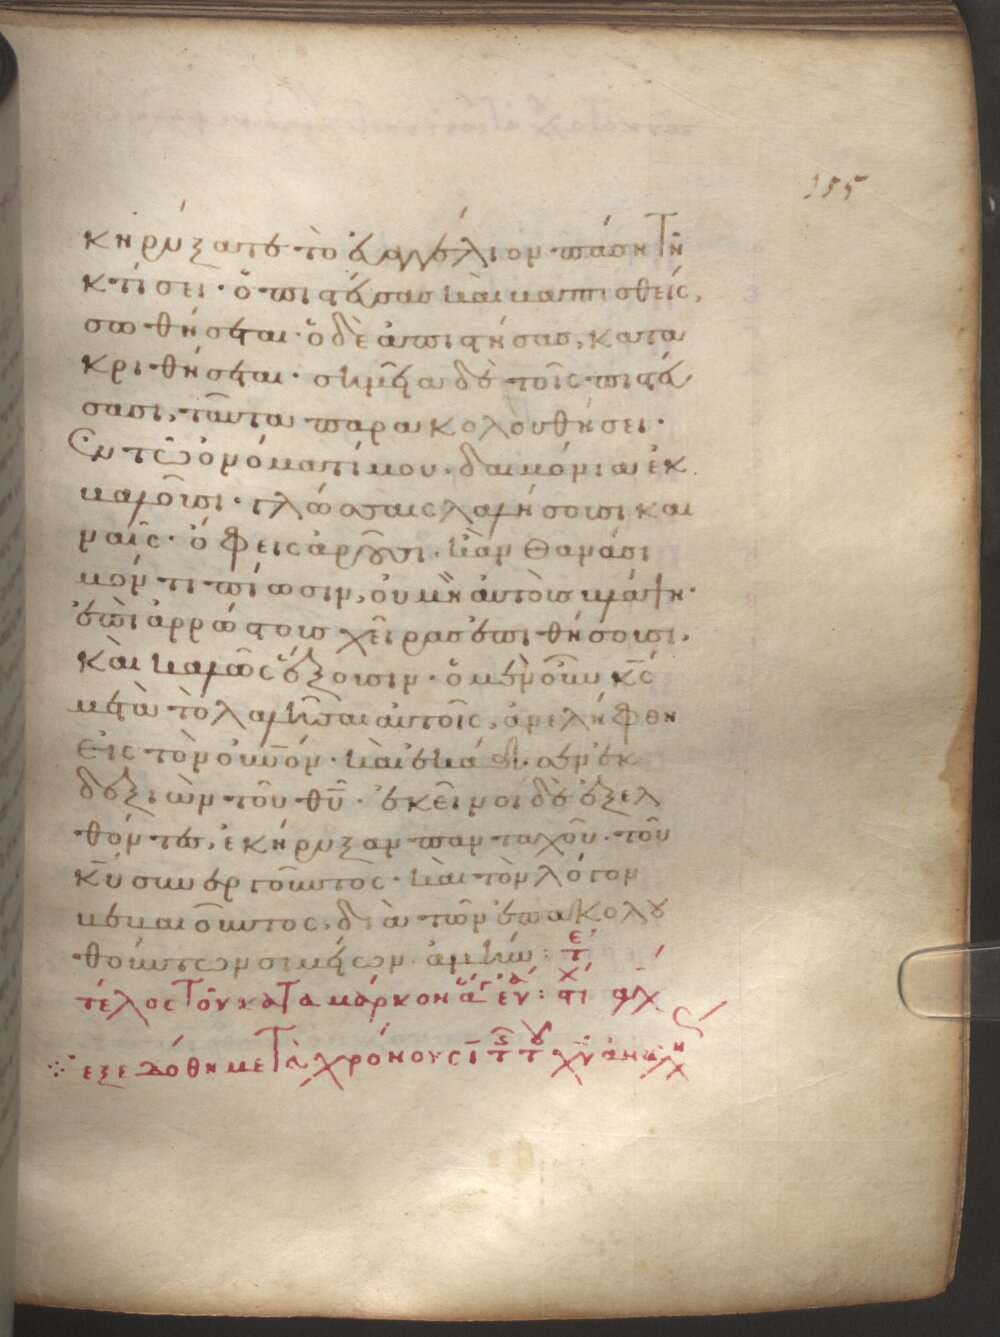 κηρύξατε τὸ ἐυαγγέλιον πάση τῆ
κτίσει· ὁ πιστέυσας καὶ βαπτισθείς,
σωθήσεται· ὁ δὲ ἀπιστήσας, κατα
κριθήσεται· σημεῖα δὲ τοῖς πιστέυ
σασι, ταῦτα παρακολουθήσει·
Ἐν τῶ ὀνόματί μου, δαιμόνια ἐκ
βαλοῦσι· γλώσσαις λαλήσουσι και
ναῖς· ὄφεις ἀροῦσι, κἂν θανάσι
μόν τι πίωσιν, οὐ μὴ ἀυτοὺς βλάψη·
ἐπὶ ἀρρώστους χεῖρας ἐπιθήσουσι,
καὶ καλῶς ἕξουσιν· ὁ μὲν οὖν κς
μετὰ τὸ λαλῆσαι ἀυτοῖς, ἀνελήφθη
εἰς τὸν οὐνον· καὶ ἐκάθισεν ἐκ
δεξιῶν τοῦ θῦ· ἐκεῖνοι δὲ ἐξελ
θόντες, ἐκήρυξαν πανταχοῦ, τοῦ
κυ συνεργοῦντος· καὶ τὸν λόγον
βεβαιοῦντος, διὰ τῶν ἐπακολου
θούντων σημείων· ἀμήν:
τέλος τοῦ κατα μάρκον ἁγ ἐυ:
ἐξεδόθη μετὰ χρόνους ι τ τ χυ ἀναλ